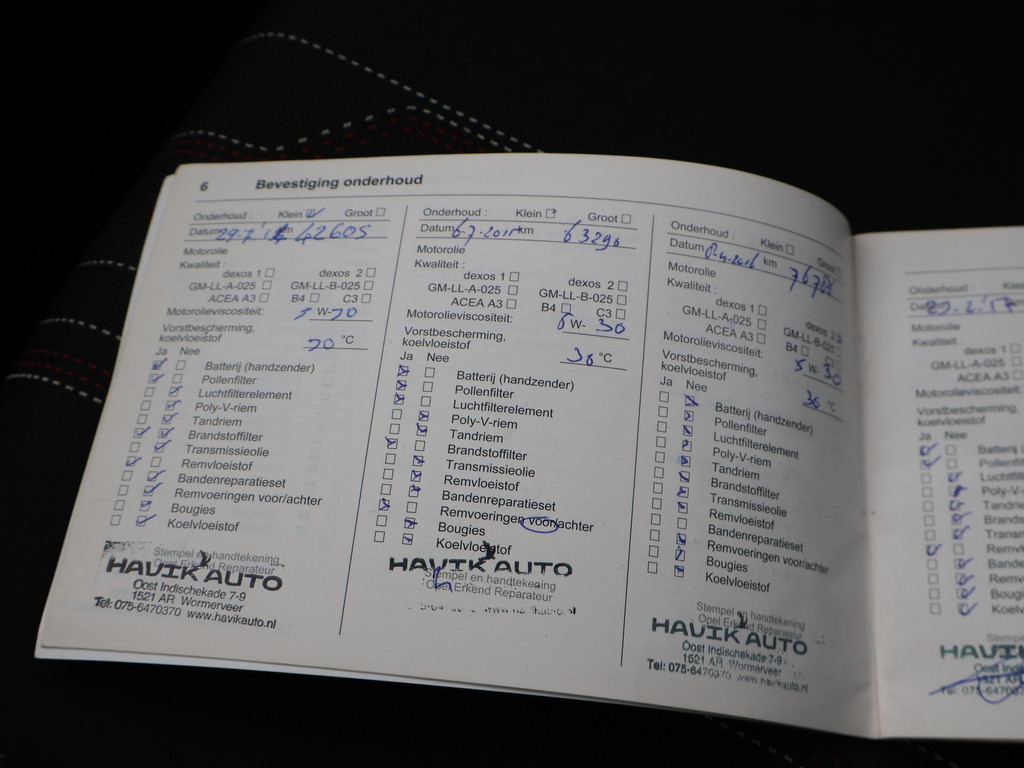 6 Bevestiging onderhoud
Onderhoud : Klein Groot
Datum 42605
Motorolie
Kwaliteit :
dexos 1 dexos 2
GM-LL-A-025 GM-LL-B-025
ACEA A3 B4 C3
Motorolieviscositeit: 5 W-30
Vorstbescherming,
koelvloeistof °C
Ja Nee
Batterij (handzender)
Pollenfilter
Luchtfilterelement
Poly-V-riem
Tandriem
Brandstoffilter
Transmissieolie
Remvloeistof
Bandenreparatieset
Remvoeringen voor/achter
Bougies
Koelvloeistof
Stempel en handtekening
Opel Erkend Reparateur
HAVIK AUTO
Oost Indischekade 7-9
1521 AR Wormerveer
Tel: 075-6470370 www.havikauto.nl
Onderhoud : Klein Groot
Datum 6-7-2015 km 63290
Motorolie
Kwaliteit :
dexos 1 dexos 2
GM-LL-A-025 GM-LL-B-025
ACEA A3 B4 C3
Motorolieviscositeit: W- 30
Vorstbescherming,
koelvloeistof 36 °C
Ja Nee
Batterij (handzender)
Pollenfilter
Luchtfilterelement
Poly-V-riem
Tandriem
Brandstoffilter
Transmissieolie
Remvloeistof
Bandenreparatieset
Remvoeringen voor/achter
Bougies
Koelvloeistof
HAVIK AUTO
Stempel en handtekening
Opel Erkend Reparateur
Onderhoud : Klein Groot
Datum 8-4-2016 km
Motorolie
Kwaliteit :
dexos 1 dexos 2
GM-LL-A-025 GM-LL-B-025
ACEA A3 B4 C3
Motorolieviscositeit: 5 W- 30
Vorstbescherming,
koelvloeistof 36 °C
Ja Nee
Batterij (handzender)
Pollenfilter
Luchtfilterelement
Poly-V-riem
Tandriem
Brandstoffilter
Transmissieolie
Remvloeistof
Bandenreparatieset
Remvoeringen voor/achter
Bougies
Koelvloeistof
Stempel en handtekening
Opel Erkend Reparateur
HAVIK AUTO
Oost Indischekade 7-9
1521 AR Wormerveer
Tel: 075-6470370 www.havikauto.nl
Onderhoud :
Motorolie
Kwaliteit :
dexos 1
GM-LL-A-025
ACEA A3
Motorolieviscositeit
Vorstbescherming,
koelvloeistof
Ja Nee
Batterij
Pollenfil
Luchtfilt
Poly-V-
Tandrie
Brands
Transm
Remvl
Bande
Remv
Bougi
Koelv
Stempe
HAVIK